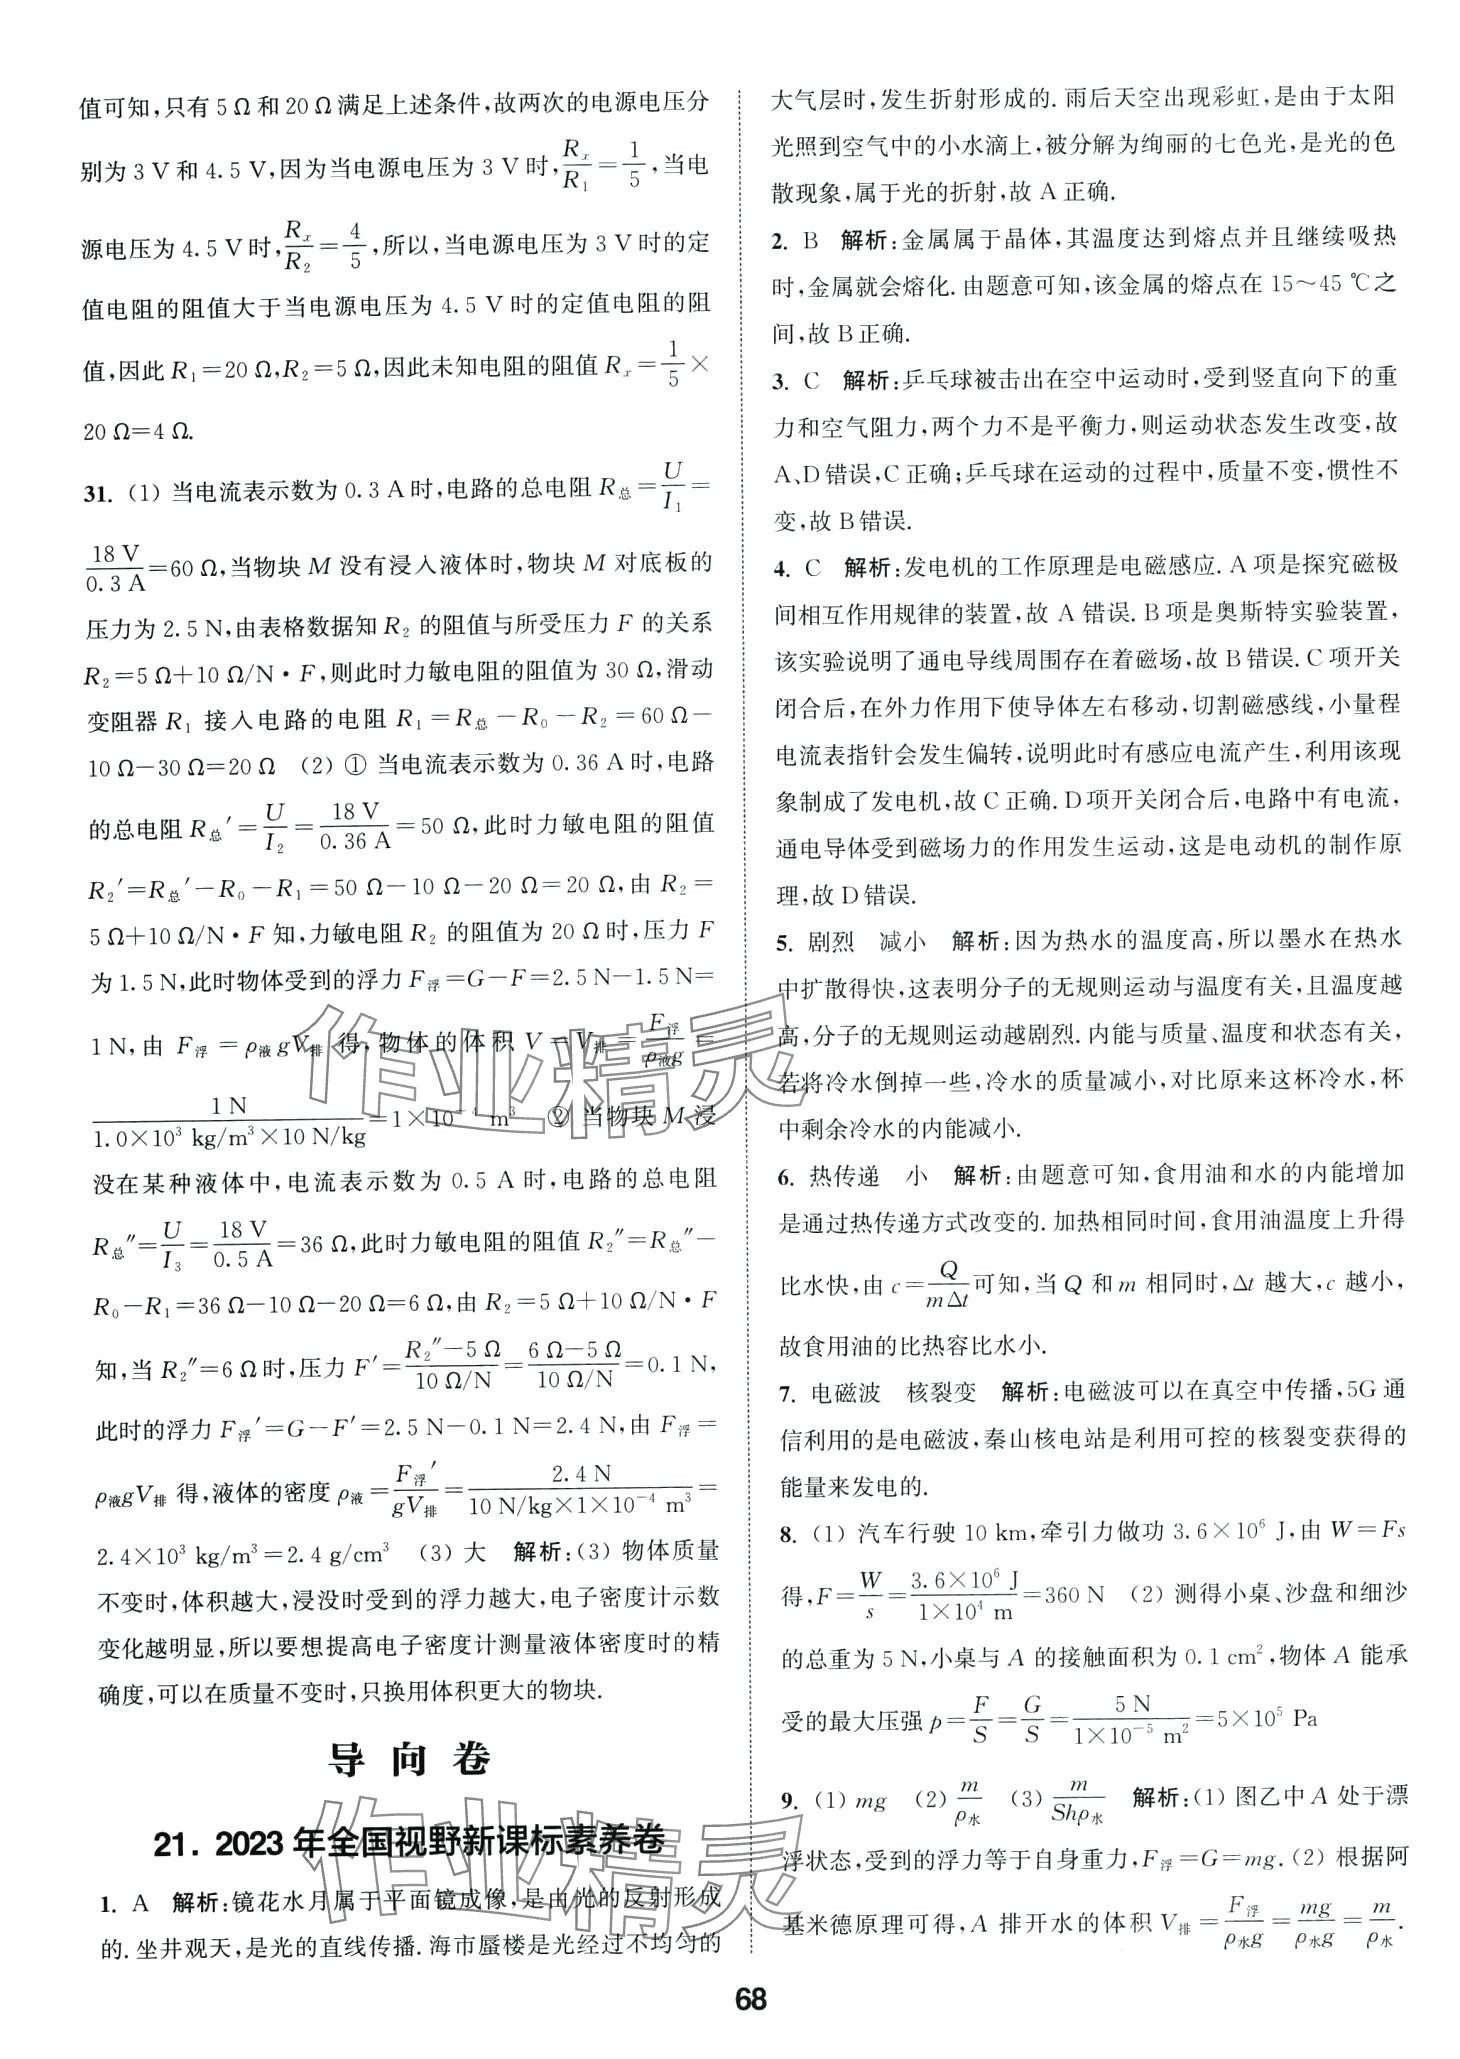 值可知,只有 5 Ω 和 20 Ω 满足上述条件,故两次的电源电压分
别为 3 V 和 4.5 V,因为当电源电压为 3 V 时,Rₓ/R₁=1/5,当电
源电压为 4.5 V 时,Rₓ/R₂=4/5,所以,当电源电压为 3 V 时的定
值电阻的阻值大于当电源电压为 4.5 V 时的定值电阻的阻
值,因此 R₁=20 Ω,R₂=5 Ω,因此未知电阻的阻值 Rₓ=1/5×
20 Ω=4 Ω.
31. (1) 当电流表示数为 0.3 A 时,电路的总电阻 R总=U/I₁=
18 V/0.3 A=60 Ω,当物块 M 没有浸入液体时,物块 M 对底板的
压力为 2.5 N,由表格数据知 R₂ 的阻值与所受压力 F 的关系
R₂=5 Ω+10 Ω/N·F,则此时力敏电阻的阻值为 30 Ω,滑动
变阻器 R₁ 接入电路的电阻 R₁=R总-R₀-R₂=60 Ω-
10 Ω-30 Ω=20 Ω (2) ① 当电流表示数为 0.36 A 时,电路
的总电阻 R总′=U/I₂=18 V/0.36 A=50 Ω,此时力敏电阻的阻值
R₂′=R总′-R₀-R₁=50 Ω-10 Ω-20 Ω=20 Ω,由 R₂=
5 Ω+10 Ω/N·F 知,力敏电阻 R₂ 的阻值为 20 Ω 时,压力 F
为 1.5 N,此时物体受到的浮力 F浮=G-F=2.5 N-1.5 N=
1 N,由 F浮=ρ液gV排 得,物体的体积 V=V排=F浮/ρ液g=
1 N/1.0×10³ kg/m³×10 N/kg=1×10⁻⁴ m³ ② 当物块 M 浸
没在某种液体中,电流表示数为 0.5 A 时,电路的总电阻
R总″=U/I₃=18 V/0.5 A=36 Ω,此时力敏电阻的阻值 R₂″=R总″-
R₀-R₁=36 Ω-10 Ω-20 Ω=6 Ω,由 R₂=5 Ω+10 Ω/N·F
知,当 R₂″=6 Ω 时,压力 F′=R₂″-5 Ω/10 Ω/N=6 Ω-5 Ω/10 Ω/N=0.1 N,
此时的浮力 F浮′=G-F′=2.5 N-0.1 N=2.4 N,由 F浮=
ρ液gV排 得,液体的密度 ρ液=F浮′/gV排=2.4 N/10 N/kg×1×10⁻⁴ m³=
2.4×10³ kg/m³=2.4 g/cm³ (3) 大 解析:(3) 物体质量
不变时,体积越大,浸没时受到的浮力越大,电子密度计示数
变化越明显,所以要想提高电子密度计测量液体密度时的精
确度,可以在质量不变时,只换用体积更大的物块.
导向卷
21. 2023 年全国视野新课标素养卷
1. A 解析:镜花水月属于平面镜成像,是由光的反射形成
的.坐井观天,是光的直线传播.海市蜃楼是光经过不均匀的
大气层时,发生折射形成的.雨后天空出现彩虹,是由于太阳
光照到空气中的小水滴上,被分解为绚丽的七色光,是光的色
散现象,属于光的折射,故 A 正确.
2. B 解析:金属属于晶体,其温度达到熔点并且继续吸热
时,金属就会熔化.由题意可知,该金属的熔点在 15～45 ℃之
间,故 B 正确.
3. C 解析:乒乓球被击出在空中运动时,受到竖直向下的重
力和空气阻力,两个力不是平衡力,则运动状态发生改变,故
A、D 错误,C 正确;乒乓球在运动的过程中,质量不变,惯性不
变,故 B 错误.
4. C 解析:发电机的工作原理是电磁感应.A 项是探究磁极
间相互作用规律的装置,故 A 错误.B 项是奥斯特实验装置,
该实验说明了通电导线周围存在着磁场,故 B 错误.C 项开关
闭合后,在外力作用下使导体左右移动,切割磁感线,小量程
电流表指针会发生偏转,说明此时有感应电流产生,利用该现
象制成了发电机,故 C 正确.D 项开关闭合后,电路中有电流,
通电导体受到磁场力的作用发生运动,这是电动机的制作原
理,故 D 错误.
5. 剧烈 减小 解析:因为热水的温度高,所以墨水在热水
中扩散得快,这表明分子的无规则运动与温度有关,且温度越
高,分子的无规则运动越剧烈.内能与质量、温度和状态有关,
若将冷水倒掉一些,冷水的质量减小,对比原来这杯冷水,杯
中剩余冷水的内能减小.
6. 热传递 小 解析:由题意可知,食用油和水的内能增加
是通过热传递方式改变的.加热相同时间,食用油温度上升得
比水快,由 c=Q/mΔt可知,当 Q 和 m 相同时,Δt 越大,c 越小,
故食用油的比热容比水小.
7. 电磁波 核裂变 解析:电磁波可以在真空中传播,5G 通
信利用的是电磁波,秦山核电站是利用可控的核裂变获得的
能量来发电的.
8. (1) 汽车行驶 10 km,牵引力做功 3.6×10⁶ J,由 W=Fs
得,F=W/s=3.6×10⁶ J/1×10⁴ m=360 N (2) 测得小桌、沙盘和细沙
的总重为 5 N,小桌与 A 的接触面积为 0.1 cm²,物体 A 能承
受的最大压强 p=F/S=G/S=5 N/1×10⁻⁵ m²=5×10⁵ Pa
9. (1) mg (2) m/ρ水 (3) m/Shρ水 解析:(1) 图乙中 A 处于漂
浮状态,受到的浮力等于自身重力,F浮=G=mg.(2) 根据阿
基米德原理可得,A 排开水的体积 V排=F浮/ρ水g=mg/ρ水g=m/ρ水.
68
作业精灵
作业精灵